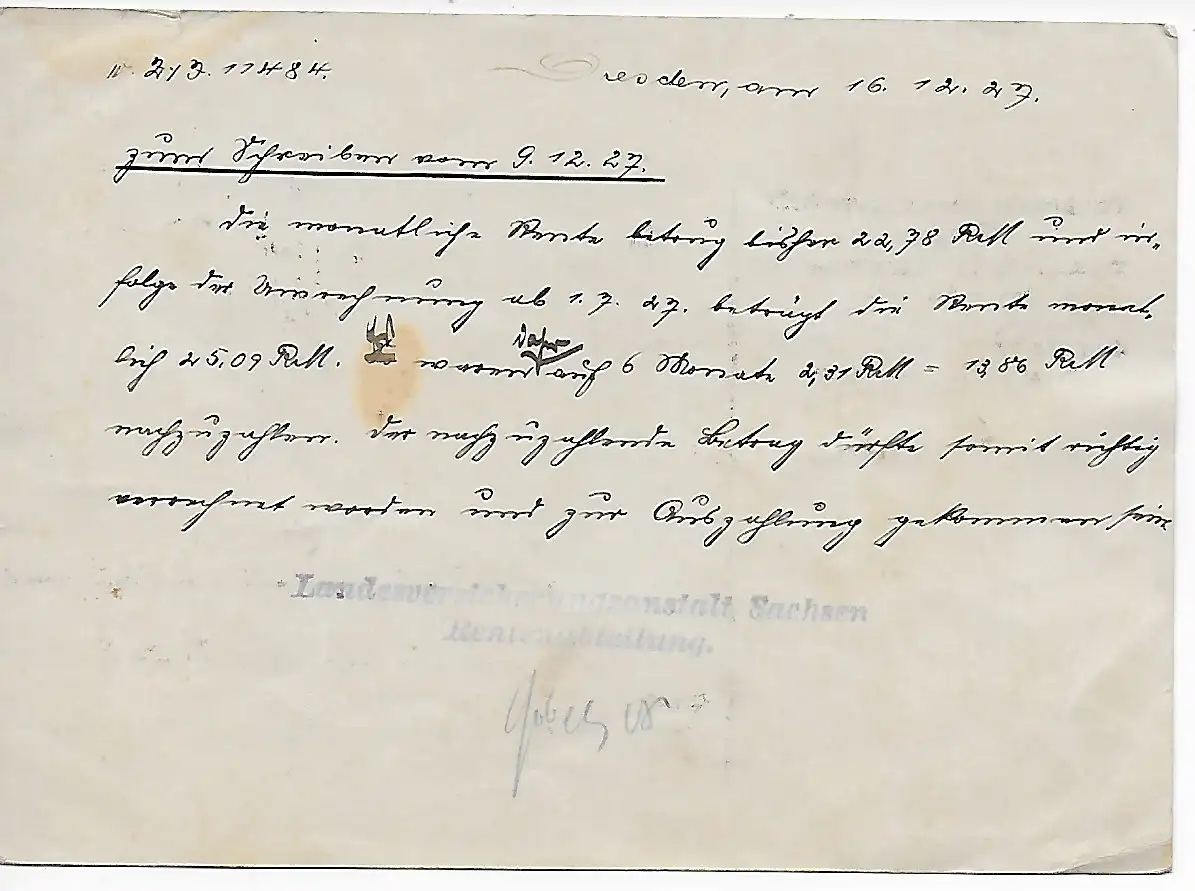 IV. 213. 11484. Dresden, am 16. 12. 27.
zum Schreiben vom 9. 12. 27.
Die monatliche Rente betrug bisher 22,78 RM und in-
folge der Umrechnung ab 1. 7. 27. beträgt die Rente monat-
lich 25,09 RM. Es waren daher auf 6 Monate 2,31 RM = 13,86 RM
nachzuzahlen. Der nachzuzahlende Betrag dürfte somit richtig
verrechnet worden und zur Auszahlung gekommen sein
Landesversicherungsanstalt Sachsen
Rentenabteilung.